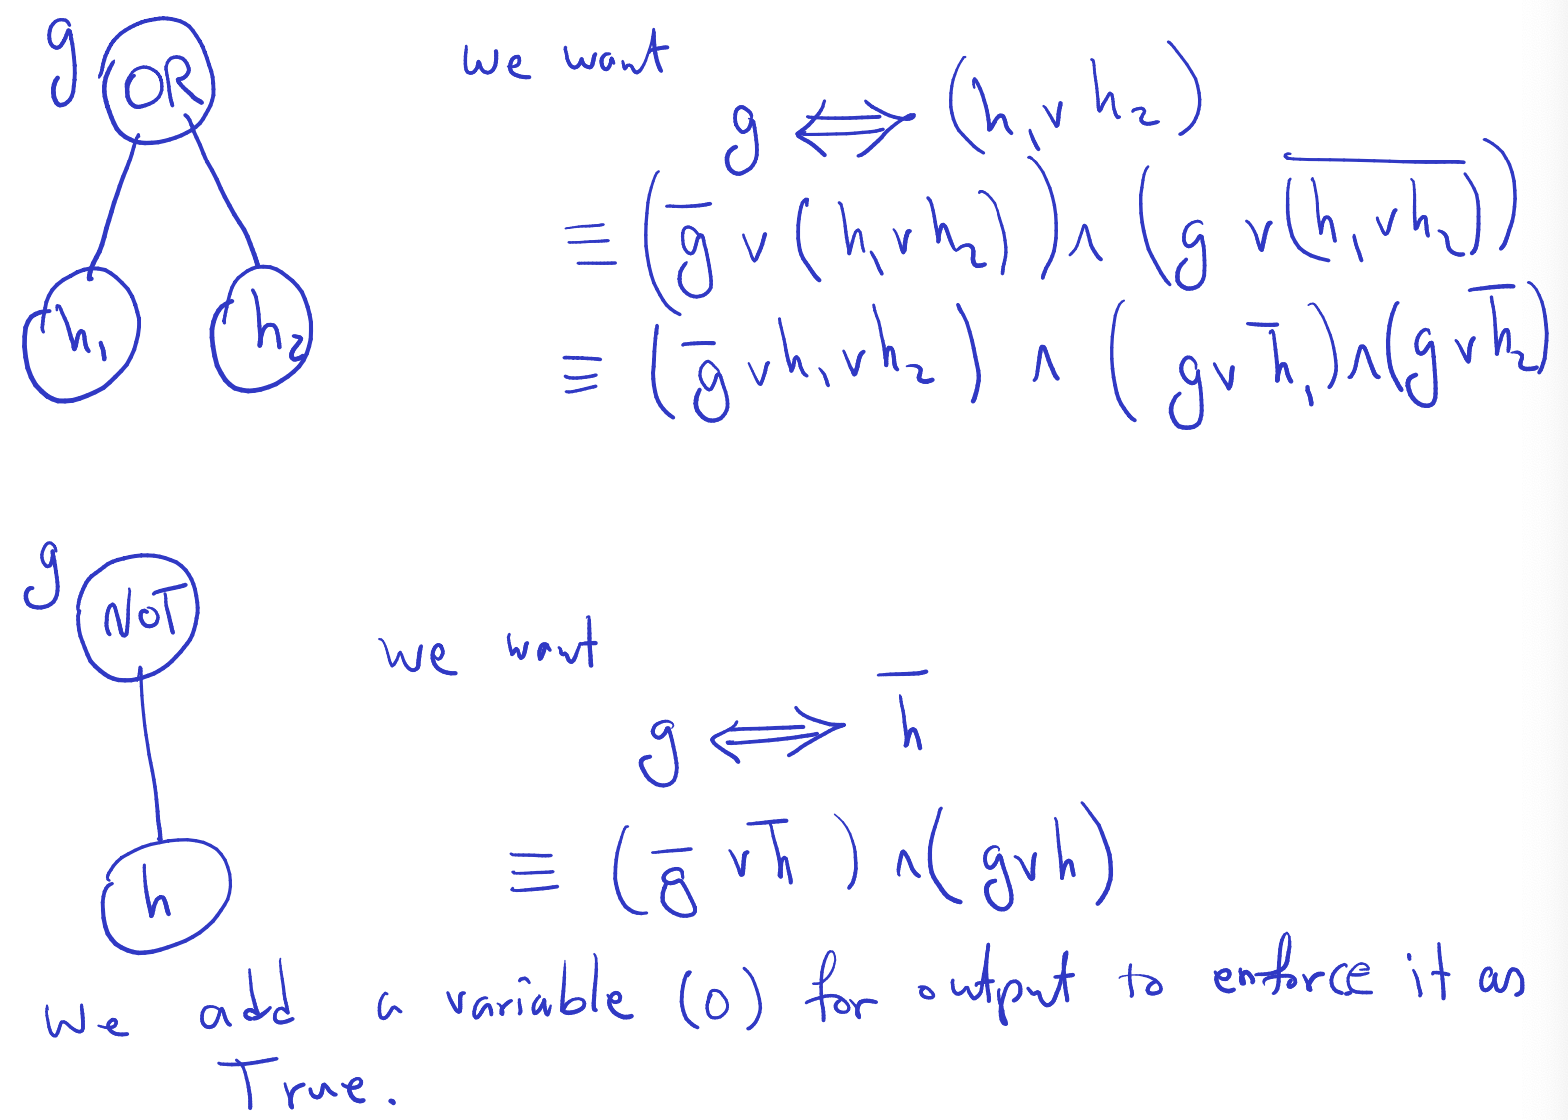 g OR we want
g ⟺ (h₁ ∨ h₂)
≡ (g̅ ∨ (h₁ ∨ h₂)) ∧ (g ∨ \overline{(h₁ ∨ h₂)})
h₁ h₂
≡ (g̅ ∨ h₁ ∨ h₂) ∧ (g ∨ h̅₁) ∧ (g ∨ h̅₂)
g NOT we want
g ⟺ h̅
h
≡ (g̅ ∨ h̅) ∧ (g ∨ h)
We add a variable (o) for output to enforce it as
True.